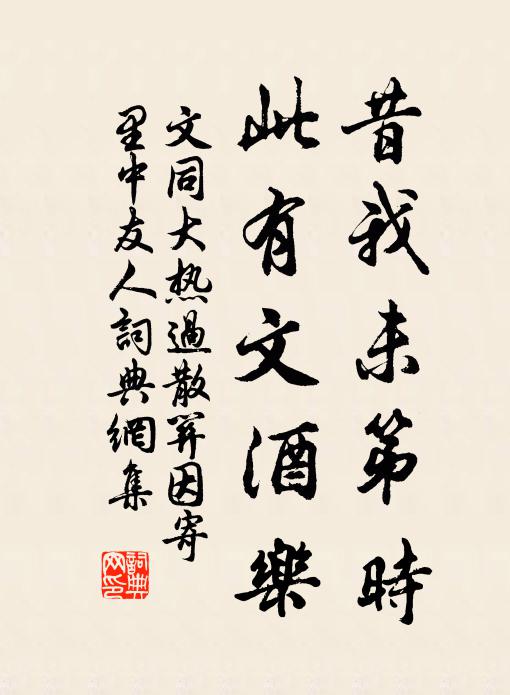 昔我未第時
此有文酒樂
文同大热過散关因寄
里中友人詞典網集
詞典网印